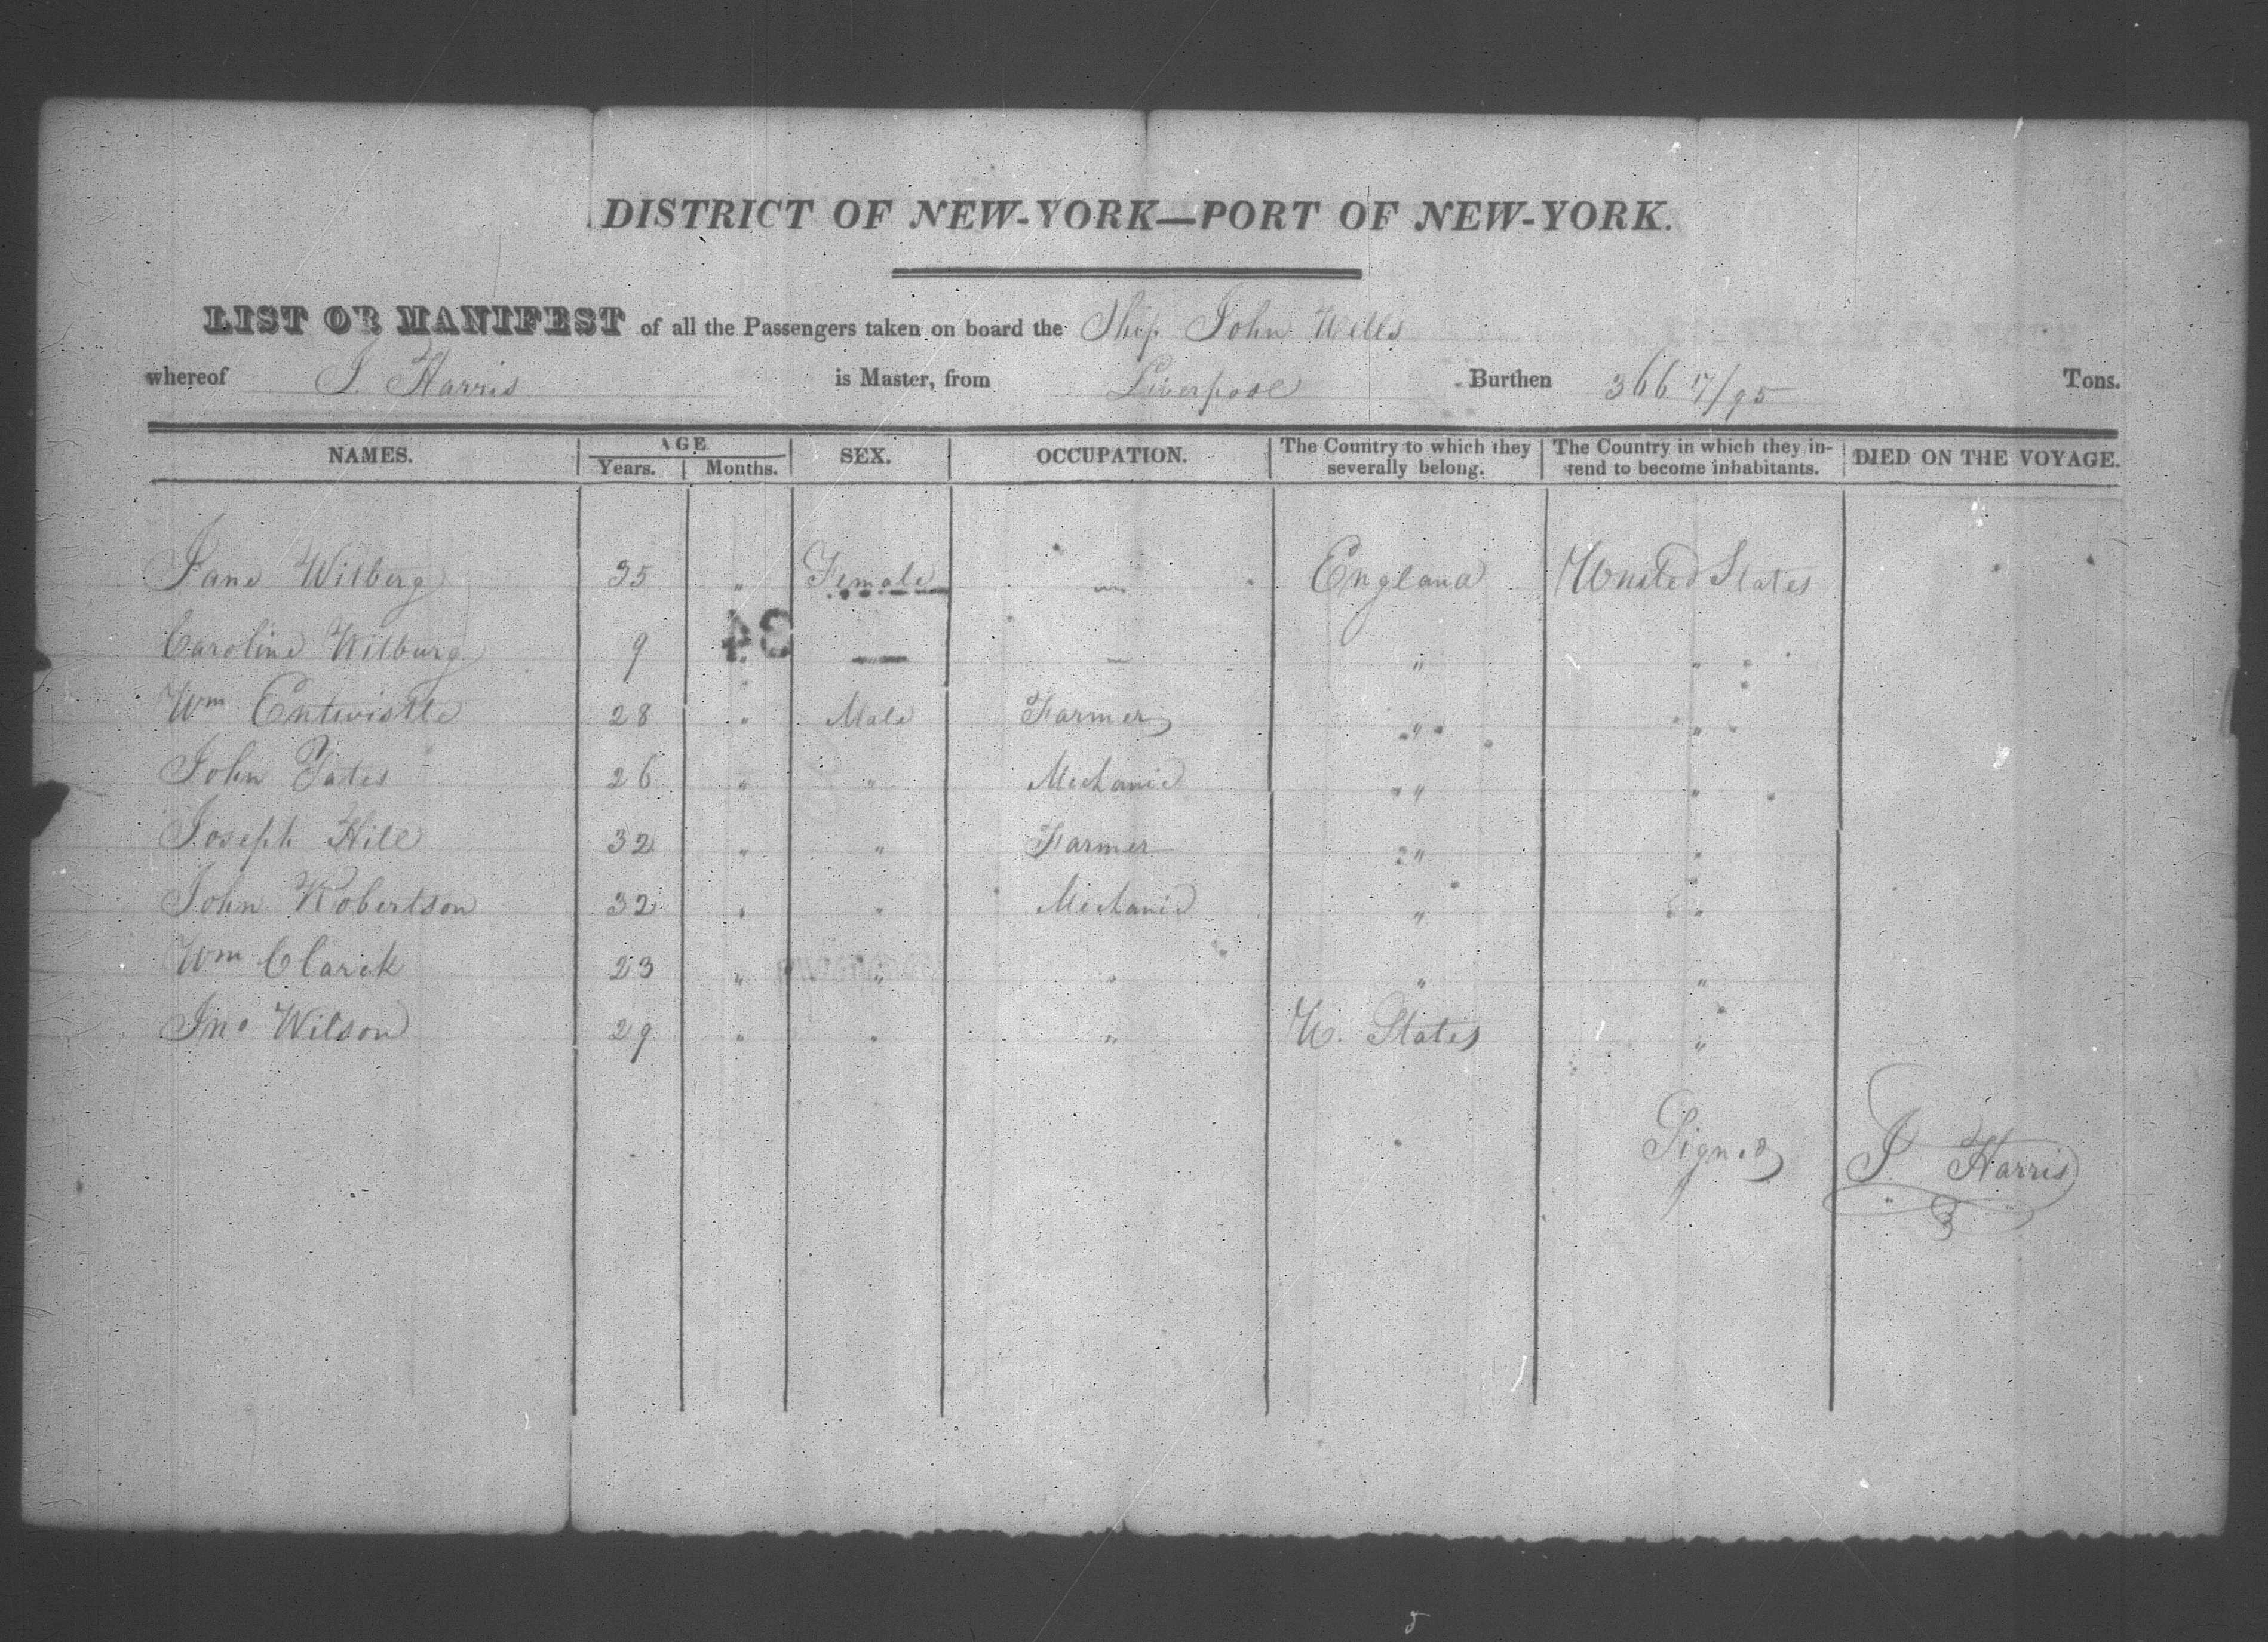 DISTRICT OF NEW-YORK—PORT OF NEW-YORK.
LIST OR MANIFEST of all the Passengers taken on board the Ship John Wells
whereof J. Harris is Master, from Liverpool Burthen 366 17/95 Tons.
NAMES. AGE SEX. OCCUPATION. The Country to which they severally belong. The Country in which they in-tend to become inhabitants. DIED ON THE VOYAGE.
Years. Months.
Jane Wilberg 35 " Female — England United States
Caroline Wilburg 9 " — — " "
Wm Entwistle 28 " Male Farmer " "
John Yates 26 " " Mechanic " "
Joseph Hill 32 " " Farmer " "
John Robertson 32 " " Mechanic " "
Wm Clarck 23 " " " " "
Jno Wilson 29 " " " U. States "
Signed J. Harris